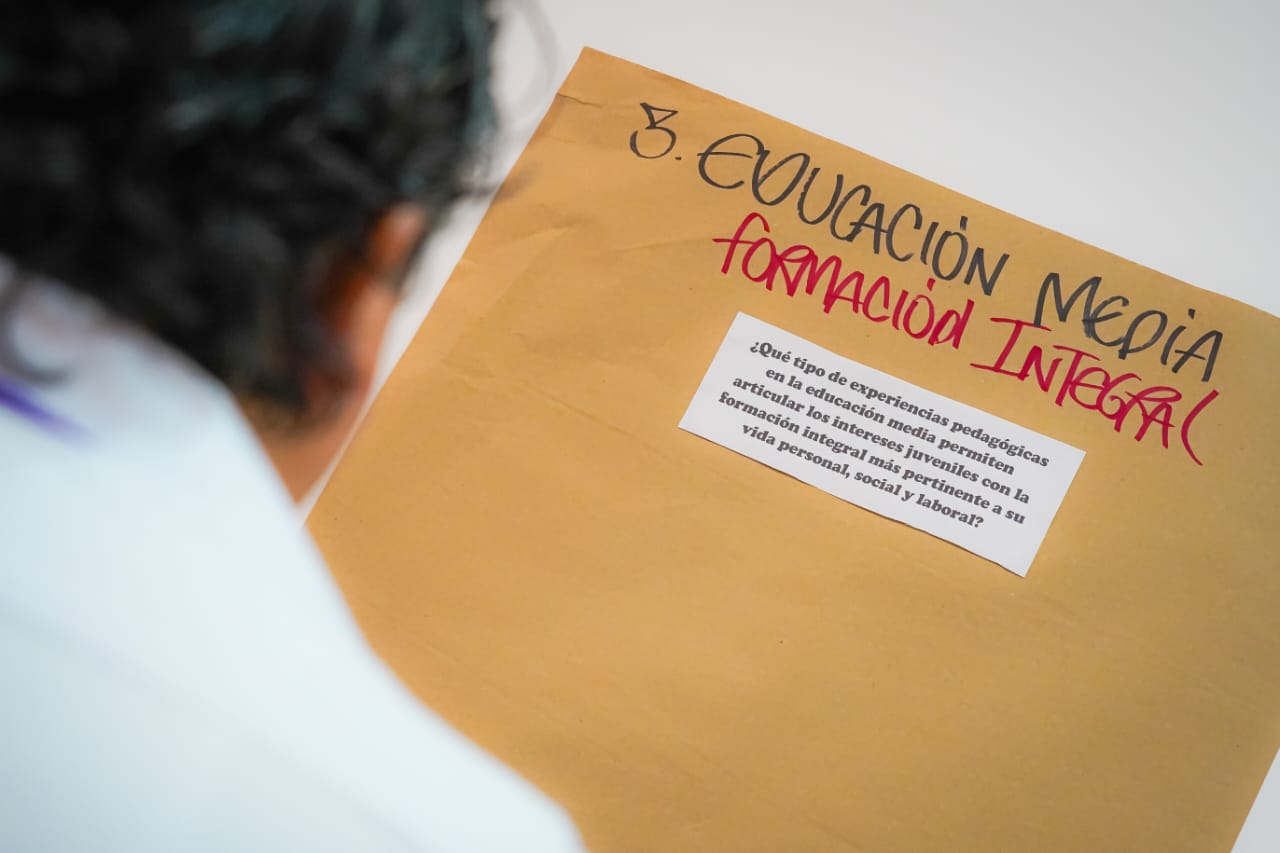 3. EDUCACIÓN MEDIA
FORMACIÓN INTEGRAL
¿Qué tipo de experiencias pedagógicas
en la educación media permiten
articular los intereses juveniles con la
formación integral más pertinente a su
vida personal, social y laboral?